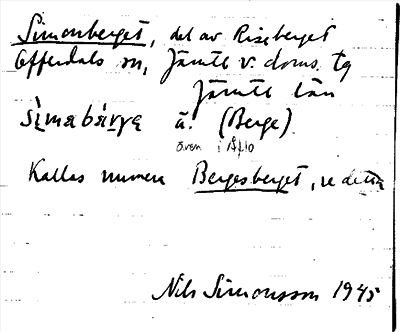 Simonberget, del av Riseberget
Offerdals sn, Jämtl v. doms. tg
Jämtl län
sìmabárγɛ ä. (Berge).
även i Åflo
Kallas numera Bergesberget, se detta
Nils Simonsson 1945